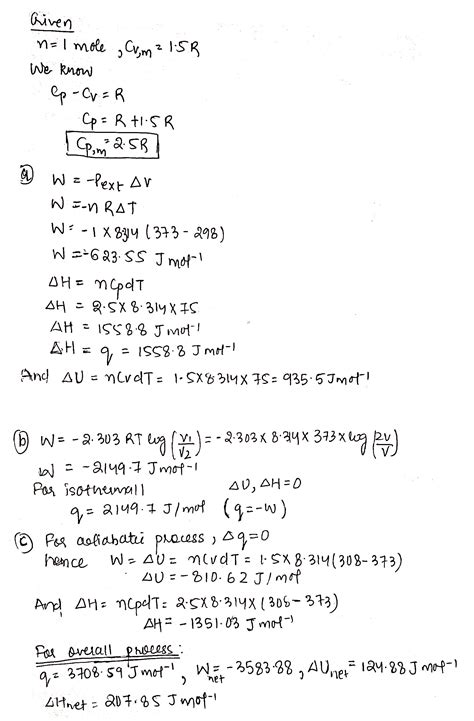 Given
n = 1 mole , Cv,m = 1.5R
We know
Cp - Cv = R
Cp = R + 1.5R
Cp,m = 2.5R
(a) W = -Pext ΔV
W = -n RΔT
W = -1 × 8.314 (373 - 298)
W = -623.55 J mol⁻¹
ΔH = nCpdT
ΔH = 2.5 × 8.314 × 75
ΔH = 1558.8 J mol⁻¹
ΔH = q = 1558.8 J mol⁻¹
And ΔU = nCvdT = 1.5×8.314×75 = 935.5 J mol⁻¹
(b) W = -2.303 RT log (V1/V2) = -2.303 × 8.314 × 373 × log (2V/V)
W = -2149.7 J mol⁻¹
For isothermall ΔU, ΔH = 0
q = 2149.7 J/mol (q = -W)
(c) For adiabatic process, Δq = 0
hence W = ΔU = nCvdT = 1.5×8.314(308-373)
ΔU = -810.62 J/mol
And ΔH = nCpdT = 2.5×8.314×(308-373)
ΔH = -1351.03 J mol⁻¹
For overall process:
q = 3708.59 J mol⁻¹, Wnet = -3583.88, ΔUnet = 124.88 J mol⁻¹
ΔHnet = 207.85 J mol⁻¹